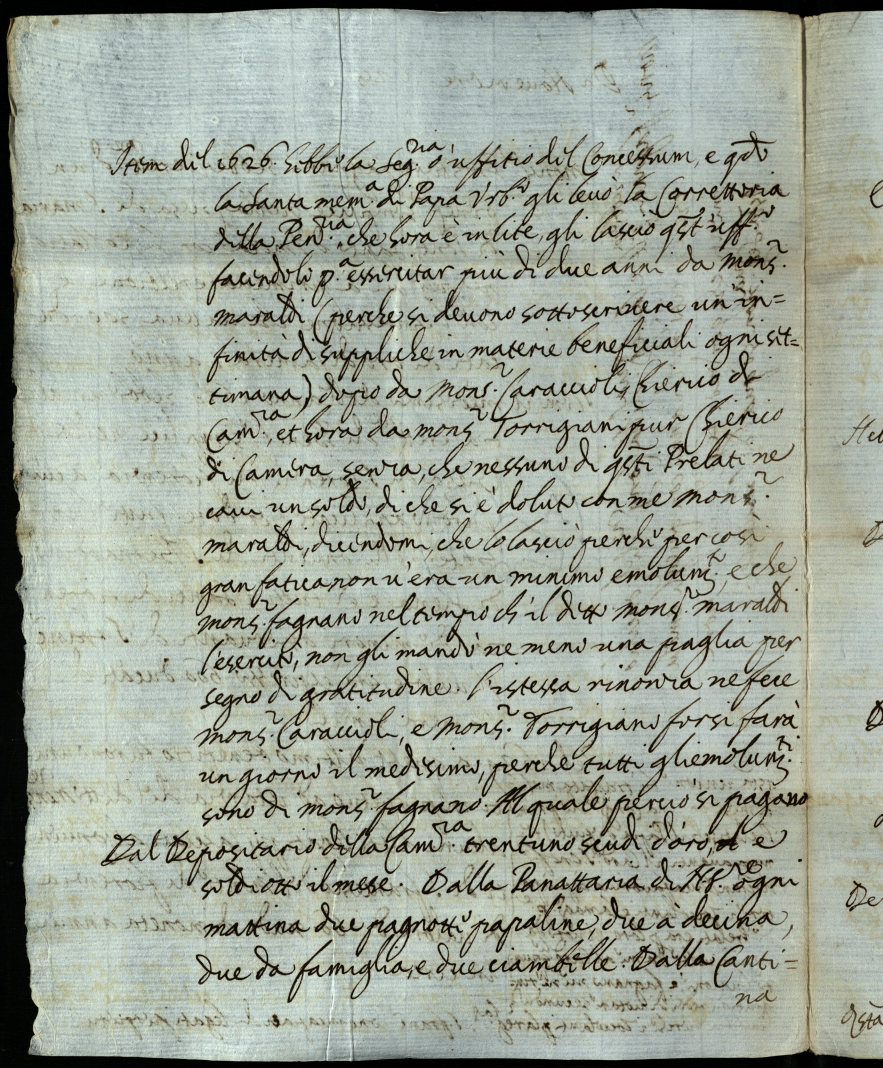 Item del 1626. hebbe la Seg.ria ò uffitio del Concessum, e qdo
la Santa mem.a di Papa Urb.o gli levò la Correttoria
della Pen.ria, che hora è in lite, gli lasciò qst'uff.o
facendolo p.a essercitar più di due anni da Mons.r
Maraldi (perche si devono sottoscrivere un'in=
finità di suppliche in materie beneficiali ogni set=
timana) dopo da Mons.r Caraccioli, Chierico di
Cam.ra, et hora da Mons.r Torrigiani pur Chierico
di Camera, senza, che nessuno di qsti Prelati ne
cavi un soldo, di che si è doluto con me Mons.r
Maraldi, dicendomi, che lo lasciò perche per così
gran fatica non v'era un minimo emolum.to, e che
Mons.r fagnano nel tempo ch'il detto Mons.r Maraldi
l'esercitò, non gli mandò ne meno una paglia per
segno di gratitudine. l'istessa rinonzia ne fece
Mons.r Caraccioli, e Mons.r Torrigiano forsi farà
un giorno il medesimo, perche tutti gli emolum.ti
sono di Mons.r fagnano. Al quale percio si pagano
Dal Depositario della Cam.ra trentuno scudi d'oro, e
soldi otto il mese. Dalla Panattaria di ogni
mattina due pagnotte papaline, due à decina,
due da famiglia, e due ciambelle. Dalla Canti=
na